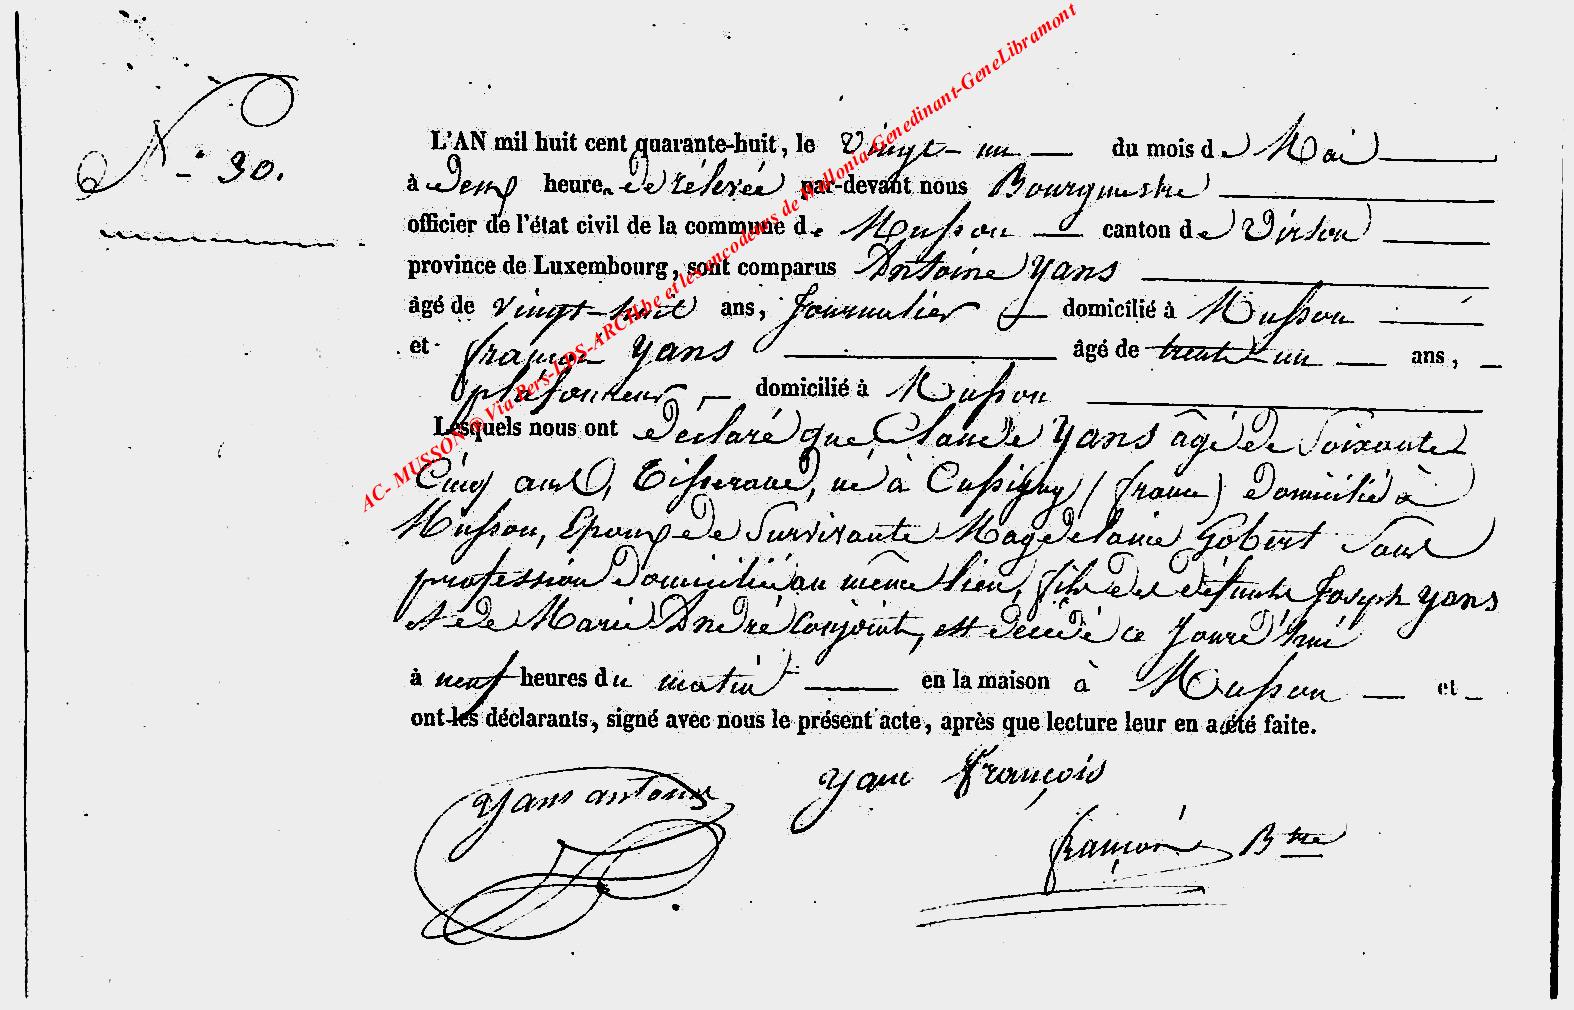 N° 30.
L'AN mil huit cent quarante-huit, le Vingt-un du mois de Mai
à deux heures de rélevée par-devant nous Bourgmestre
officier de l'état civil de la commune de Musson canton de Virton
province de Luxembourg, sont comparus Antoine Yans
âgé de vingt-huit ans, Journalier domicilié à Musson
et françois Yans âgé de trente-un ans,
plafonneur, domicilié à Musson
Lesquels nous ont déclaré que Claude Yans âgé de Soixante
Cinq ans, Tisserand, né à Cussigny (france) domicilié à
Musson, Epoux de Survivante Magdelaine Gobert Sans
profession domiciliée au même lieu, fils des défunts Joseph Yans
et de Marie André Conjoint, est décédé ce Jourd'hui
à neuf heures du matin en la maison à Musson et
ont les déclarants, signé avec nous le présent acte, après que lecture leur en a été faite.
Yans antoine
Yans François
françois Btre
AC- MUSSON @ Via Pers-LDS-ARCH.be et les encodeurs de Wallonia-Genedinant-GeneLibramont